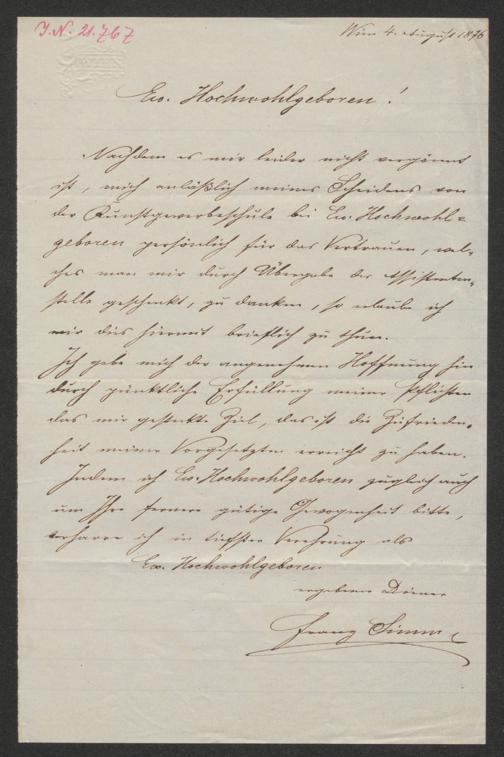 I. N. 21.767
Wien 4. August 1876
Ew. Hochwohlgeboren!
Nachdem es mir leider nicht vergönnt
ist, mich anläßlich meines Scheidens von
der Kunstgewerbeschule bei Ew. Hochwohl=
geboren persönlich für das Vertrauen, wel-
ches man mir durch Übergabe der Assistenten-
stelle geschenkt, zu danken, so erlaube ich
mir dies hiermit brieflich zu thun.
Ich gebe mich der angenehmen Hoffnung hin
durch pünktliche Erfüllung meiner Pflichten
das mir gesteckte Ziel, das ist die Zufrieden-
heit meiner Vorgesetzten erreicht zu haben.
Indem ich Ew. Hochwohlgeboren zugleich auch
um Ihre fernere gütige Gewogenheit bitte,
verharre ich in tiefster Verehrung als
Ew. Hochwohlgeboren
ergebener Diener
Franz Simm